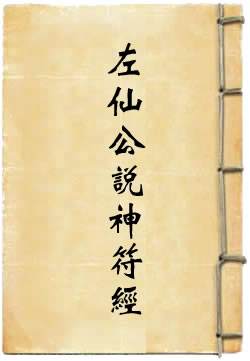 左仙公説神符經